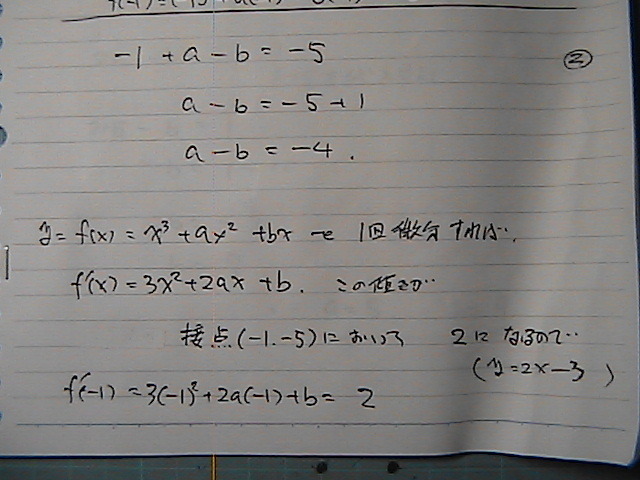 -1 + a - b = -5
②
a - b = -5 + 1
a - b = -4.
y = f(x) = x³ + ax² + bx を 1回微分すれば‥
f'(x) = 3x² + 2ax + b. この値が‥
接点(-1.-5)において 2になるので‥
(y=2x-3)
f'(-1) = 3(-1)² + 2a(-1) + b = 2